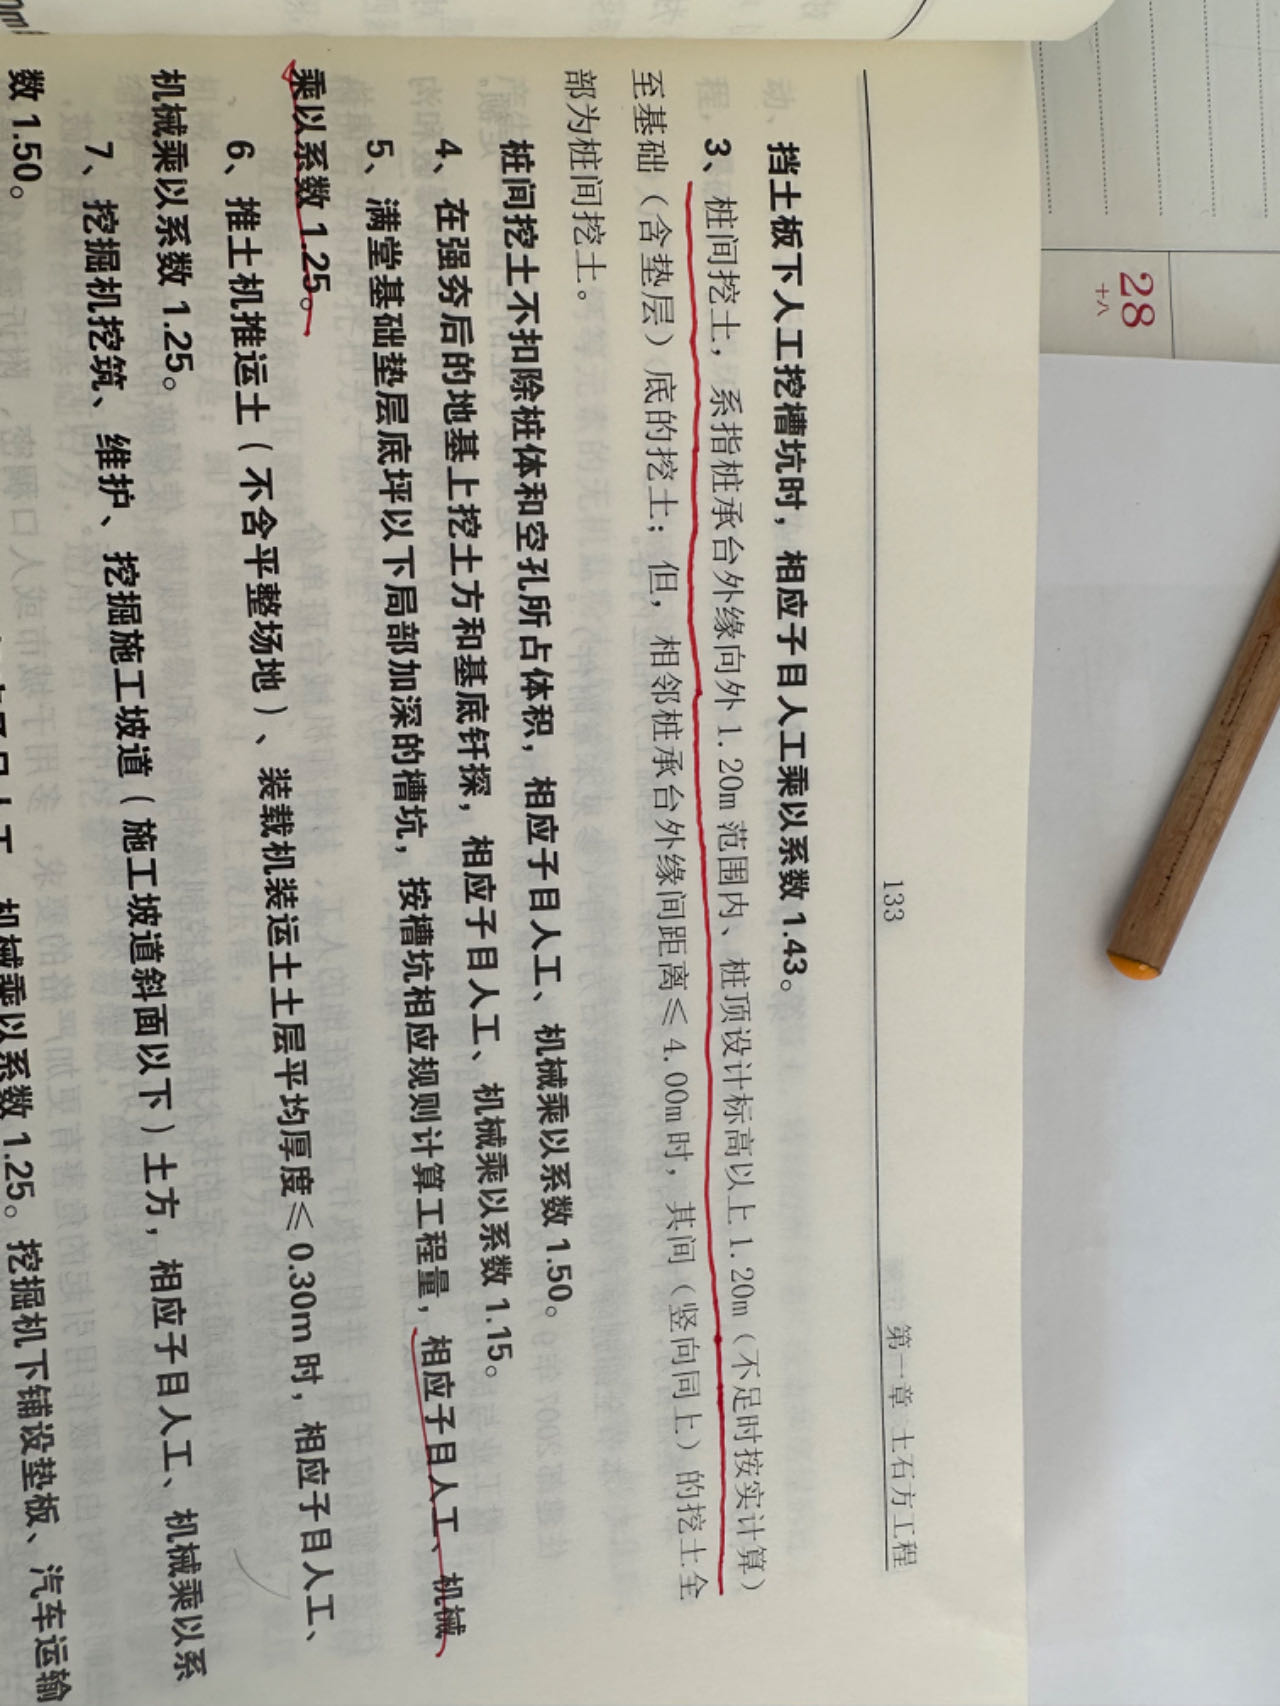 133
第一章 土石方工程
挡土板下人工挖槽坑时，相应子目人工乘以系数 1.43。
3、桩间挖土，系指桩承台外缘向外 1.20m 范围内、桩顶设计标高以上 1.20m（不足时按实计算）
至基础（含垫层）底的挖土；但，相邻桩承台外缘间距离≤4.00m 时，其间（竖向同上）的挖土全
部为桩间挖土。
桩间挖土不扣除桩体和空孔所占体积，相应子目人工、机械乘以系数 1.50。
4、在强夯后的地基上挖土方和基底钎探，相应子目人工、机械乘以系数 1.15。
5、满堂基础垫层底坪以下局部加深的槽坑，按槽坑相应规则计算工程量，相应子目人工、机械
乘以系数 1.25。
6、推土机推运土（不含平整场地）、装载机装运土土层平均厚度≤0.30m 时，相应子目人工、
机械乘以系数 1.25。
7、挖掘机挖筑、维护、挖掘施工坡道（施工坡道斜面以下）土方，相应子目人工、机械乘以系
数 1.50。
机械乘以系数 1.25。挖掘机下铺设垫板、汽车运输
28
十八